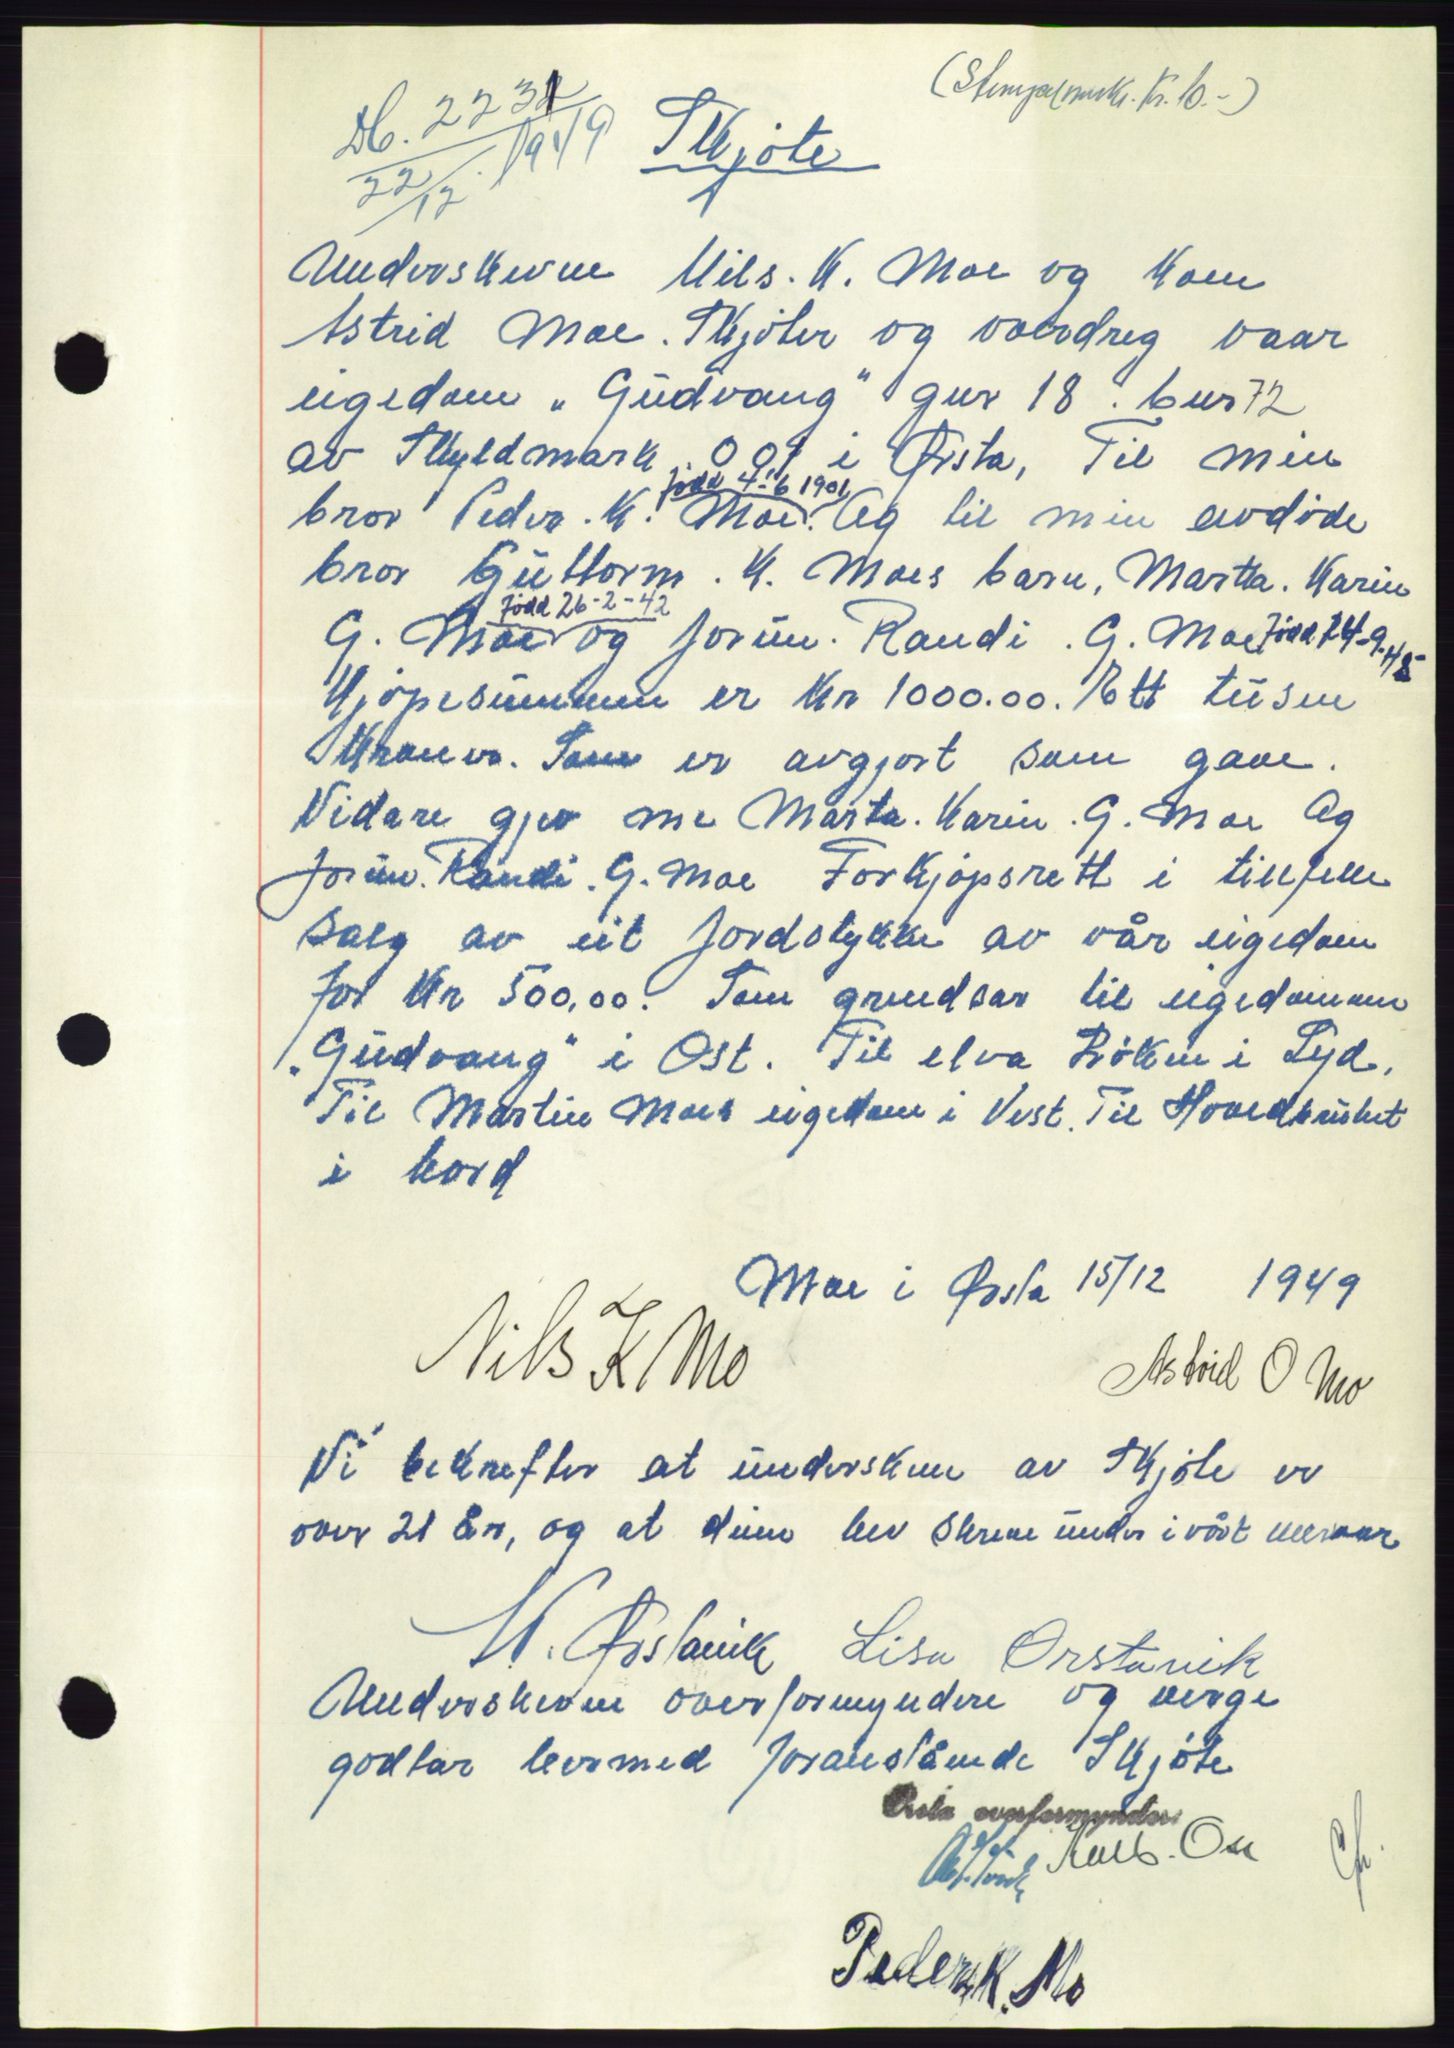 (Stempelmerke. Kr. 10.-)
Db. 2231/1949
22/12.
Skjøte
Underskrivne Nils. K. Moe og Kone
Astrid Moe. Skjöter og overdreg vaar
eigedom „Gudvang" gnr 18. bnr 72
av Skyldmark 0 01 i Ørsta, Til min
född 4-6 1901
bror Peder. K. Moe. Og til min avdöde
bror Guttorm. K. Moes barn, Marta. Karin
född 26-2-42
G. Moe og Jorun. Randi. G. Moe född 24-9-45
Kjöpesummen er Kr 1000.00. Ett tusen
Kroner. Som er avgjort som gave.
Vidare gjev me Marta. Karin. G. Moe Og
Jorun. Randi. G. Moe Forkjöpsrett i tilfelle
Salg av eit Jordstykke av vår eigedom
for Kr 500,00. Som grendsar til eigedommen
„Gudvang" i Ost. Til elva i Syd.
Til Martin Moes eigedom i Vest. Til
i Nord
Moe i Ørsta 15/12 1949
Nils K Mo
Astrid O Mo
Vi bekrefter at underskrivne av Skjöte er
over 21 år, og at dei hev skreve under i vårt nærvær
N. Ørstavik Lisa Orstavik
Underskrivne overformyndere og verge
godtar hermed foranstående Skjöte
Ørsta overformynderi
Peder K. Mo